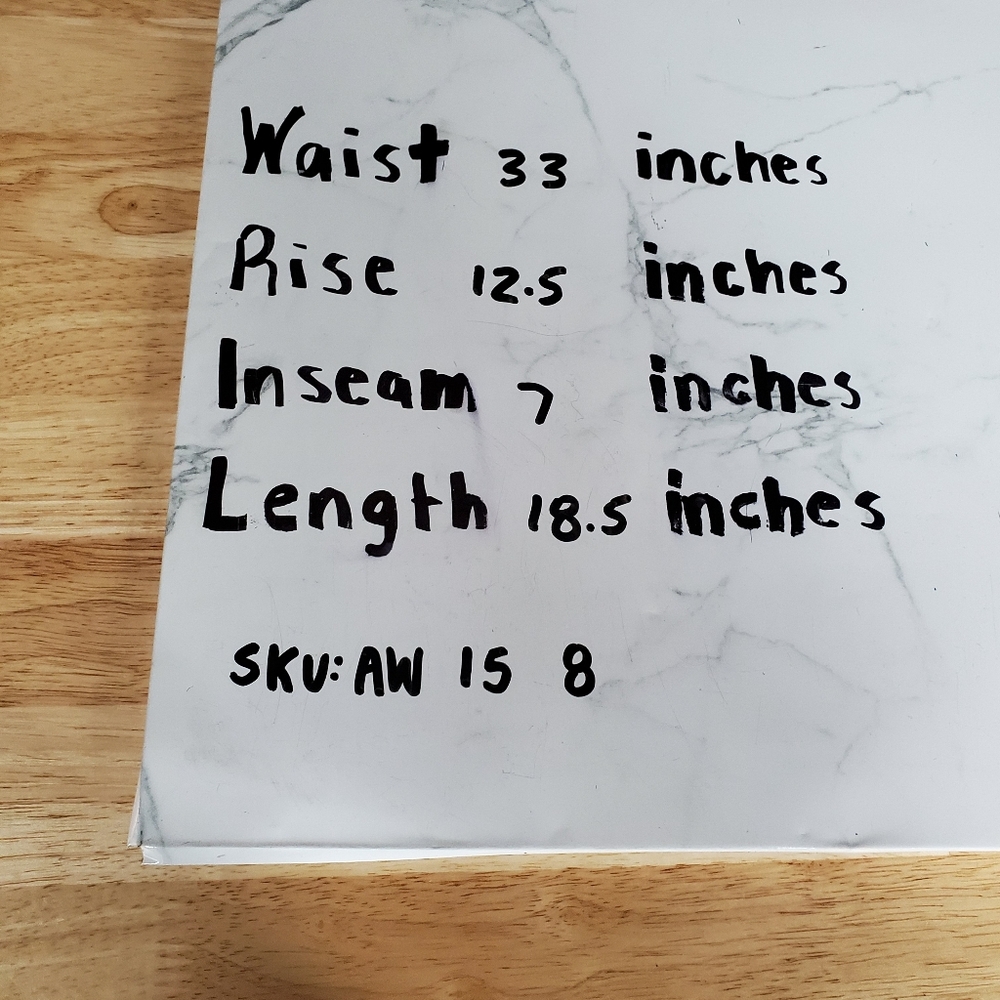 Waist 33 inches
Rise 12.5 inches
Inseam 7 inches
Length 18.5 inches
SKU: AW 15 8